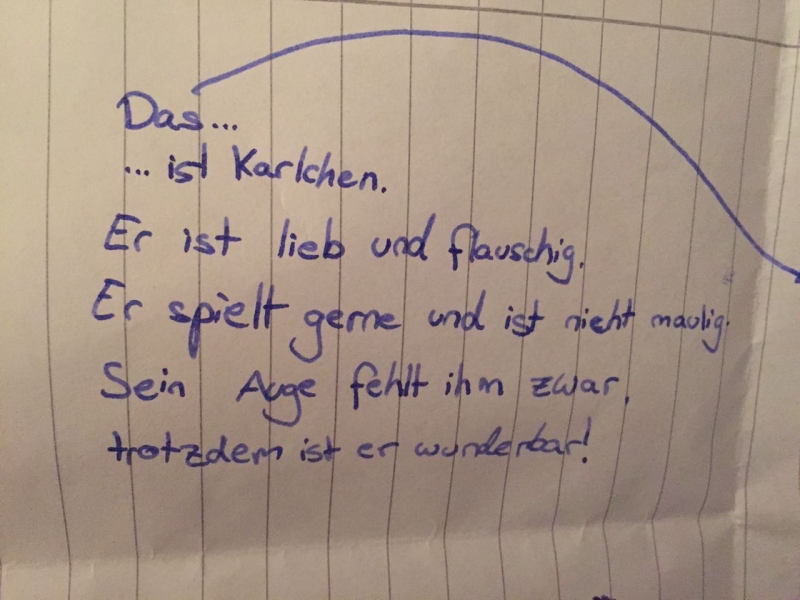 Das...
... ist Karlchen.
Er ist lieb und flauschig.
Er spielt gerne und ist nicht maulig.
Sein Auge fehlt ihm zwar,
trotzdem ist er wunderbar!